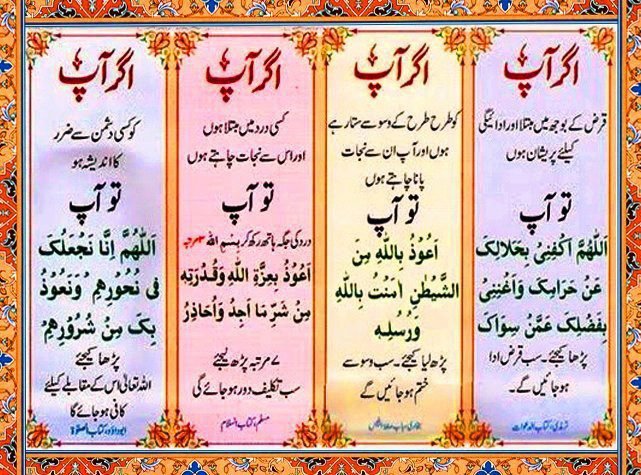 اگر آپ
قرض کے بوجھ میں مبتلا اور ادائیگی
کیلئے پریشان ہوں
تو آپ
اَللّٰهُمَّ اكْفِنِىْ بِحَلَالِكَ
عَنْ حَرَامِكَ وَاَغْنِنِىْ
بِفَضْلِكَ عَمَّنْ سِوَاكَ
پڑھا کیجئے۔ سب قرض ادا
ہو جائیں گے۔
ترمذی، کتاب الدعوات
اگر آپ
کو طرح طرح کے وسوسے ستا رہے
ہوں اور آپ ان سے نجات
پانا چاہتے ہوں
تو آپ
اَعُوْذُ بِاللّٰهِ مِنَ
الشَّيْطٰنِ اٰمَنْتُ بِاللّٰهِ
وَرُسُلِهٖ
پڑھ لیا کیجئے۔ سب وسوسے
ختم ہو جائیں گے
اگر آپ
کسی درد میں مبتلا ہوں
اور اس سے نجات چاہتے ہوں
تو آپ
درد کی جگہ ہاتھ رکھ کر بسم اللہ ۳ مرتبہ
اَعُوْذُ بِعِزَّةِ اللّٰهِ وَقُدْرَتِهٖ
مِنْ شَرِّ مَا اَجِدُ وَاُحَاذِرُ
۷ مرتبہ پڑھ لیجئے
سب تکلیف دور ہو جائے گی
مسلم، کتاب السلام
اگر آپ
کو کسی دشمن سے ضرر
کا اندیشہ ہو
تو آپ
اَللّٰهُمَّ اِنَّا نَجْعَلُكَ
فِىْ نُحُوْرِهِمْ وَنَعُوْذُ
بِكَ مِنْ شُرُوْرِهِمْ
پڑھا کیجئے
اللہ تعالیٰ اس کے مقابلے کیلئے
کافی ہو جائے گا
ابوداؤد، کتاب الصلوٰۃ